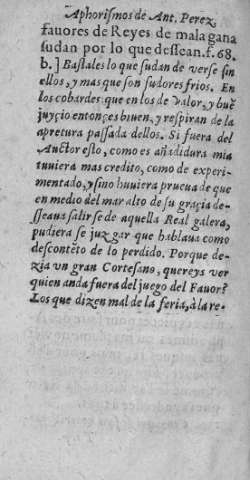 Aphorismos de Ant. Perez,
fauores de Reyes de mala gana
sudan por lo que dessean. f. 68.
b. ] Bastales lo que sudan de verse sin
ellos, y mas que son sudores frios. En
los cobardes que en los de valor, y buẽ
juyçio entonçes biuen, y respiran de la
apretura passada dellos. Si fuera del
Auctor esto, como es añadidura mia
tuuiera mas credito, como de experi-
mentado, y si no huuiera prueua de que
en medio del mar alto de su graçia de-
sseaua salirse de aquella Real galera,
pudiera se juzgar que hablaua como
descontẽto de lo perdido. Porque de-
zia vn gran Cortesano, quereys ver
quien anda fuera del juego del Fauor?
Los que dizen mal de la feria, à la re-